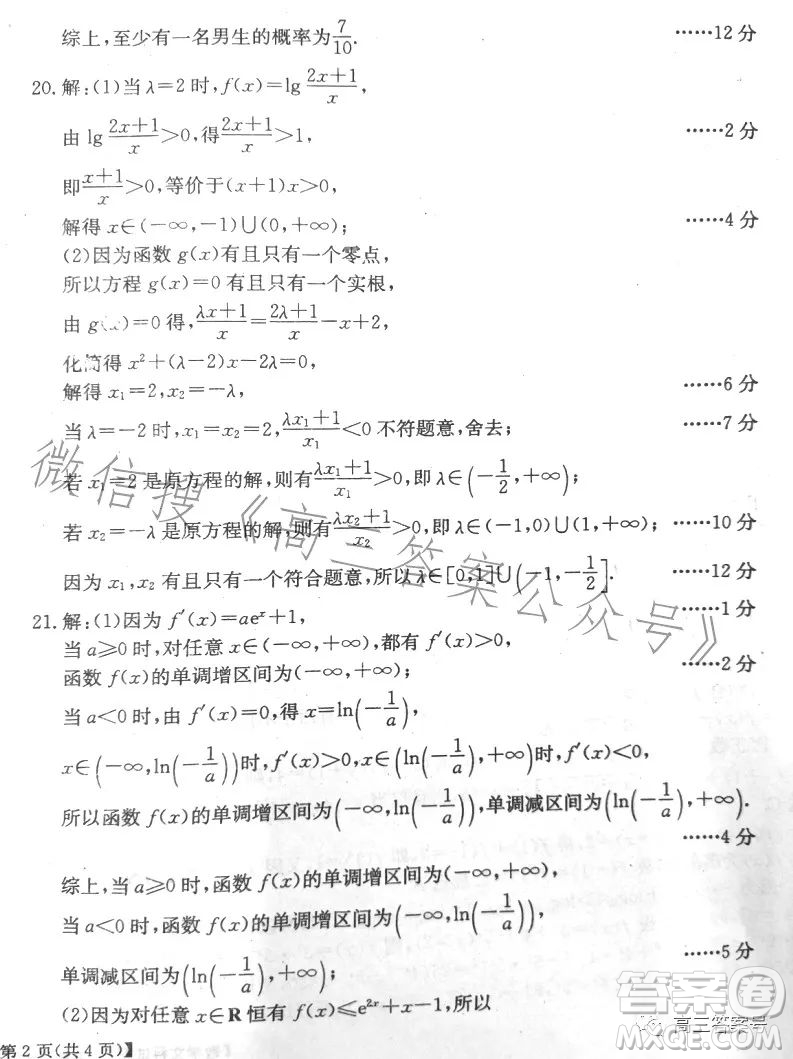 综上,至少有一名男生的概率为7/10. ……12分
20.解:(1)当λ=2时,f(x)=lg (2x+1)/x,
由 lg (2x+1)/x>0,得(2x+1)/x>1, ……2分
即(x+1)/x>0,等价于(x+1)x>0,
解得 x∈(-∞,-1)∪(0,+∞); ……4分
(2)因为函数 g(x)有且只有一个零点,
所以方程 g(x)=0有且只有一个实根,
由 g(x)=0得,(λx+1)/x=(2λ+1)/2-x+2,
化简得 x²+(λ-2)x-2λ=0,
解得 x₁=2,x₂=-λ, ……6分
当λ=-2时,x₁=x₂=2,(λx₁+1)/x₁<0不符题意,舍去; ……7分
若 x₁=2是原方程的解,则有(λx₁+1)/x₁>0,即λ∈(-1/2,+∞);
若 x₂=-λ是原方程的解,则有(λx₂+1)/x₂>0,即λ∈(-1,0)∪(1,+∞); ……10分
因为 x₁,x₂有且只有一个符合题意,所以λ∈[0,1]∪(-1,-1/2]. ……12分
21.解:(1)因为 f′(x)=aeˣ+1, ……1分
当a≥0时,对任意 x∈(-∞,+∞),都有 f′(x)>0,
函数 f(x)的单调增区间为(-∞,+∞); ……2分
当a<0时,由 f′(x)=0,得 x=ln(-1/a),
x∈(-∞,ln(-1/a))时,f′(x)>0,x∈(ln(-1/a),+∞)时,f′(x)<0,
所以函数 f(x)的单调增区间为(-∞,ln(-1/a)),单调减区间为(ln(-1/a),+∞).
……4分
综上,当 a≥0时,函数 f(x)的单调增区间为(-∞,+∞);
当a<0时,函数 f(x)的单调增区间为(-∞,ln(-1/a)),
单调减区间为(ln(-1/a),+∞); ……5分
(2)因为对任意 x∈R恒有 f(x)≤e²ˣ+x-1,所以
第2页(共4页)】
微信搜《高三答案公众号》
答案卷
高三答案号